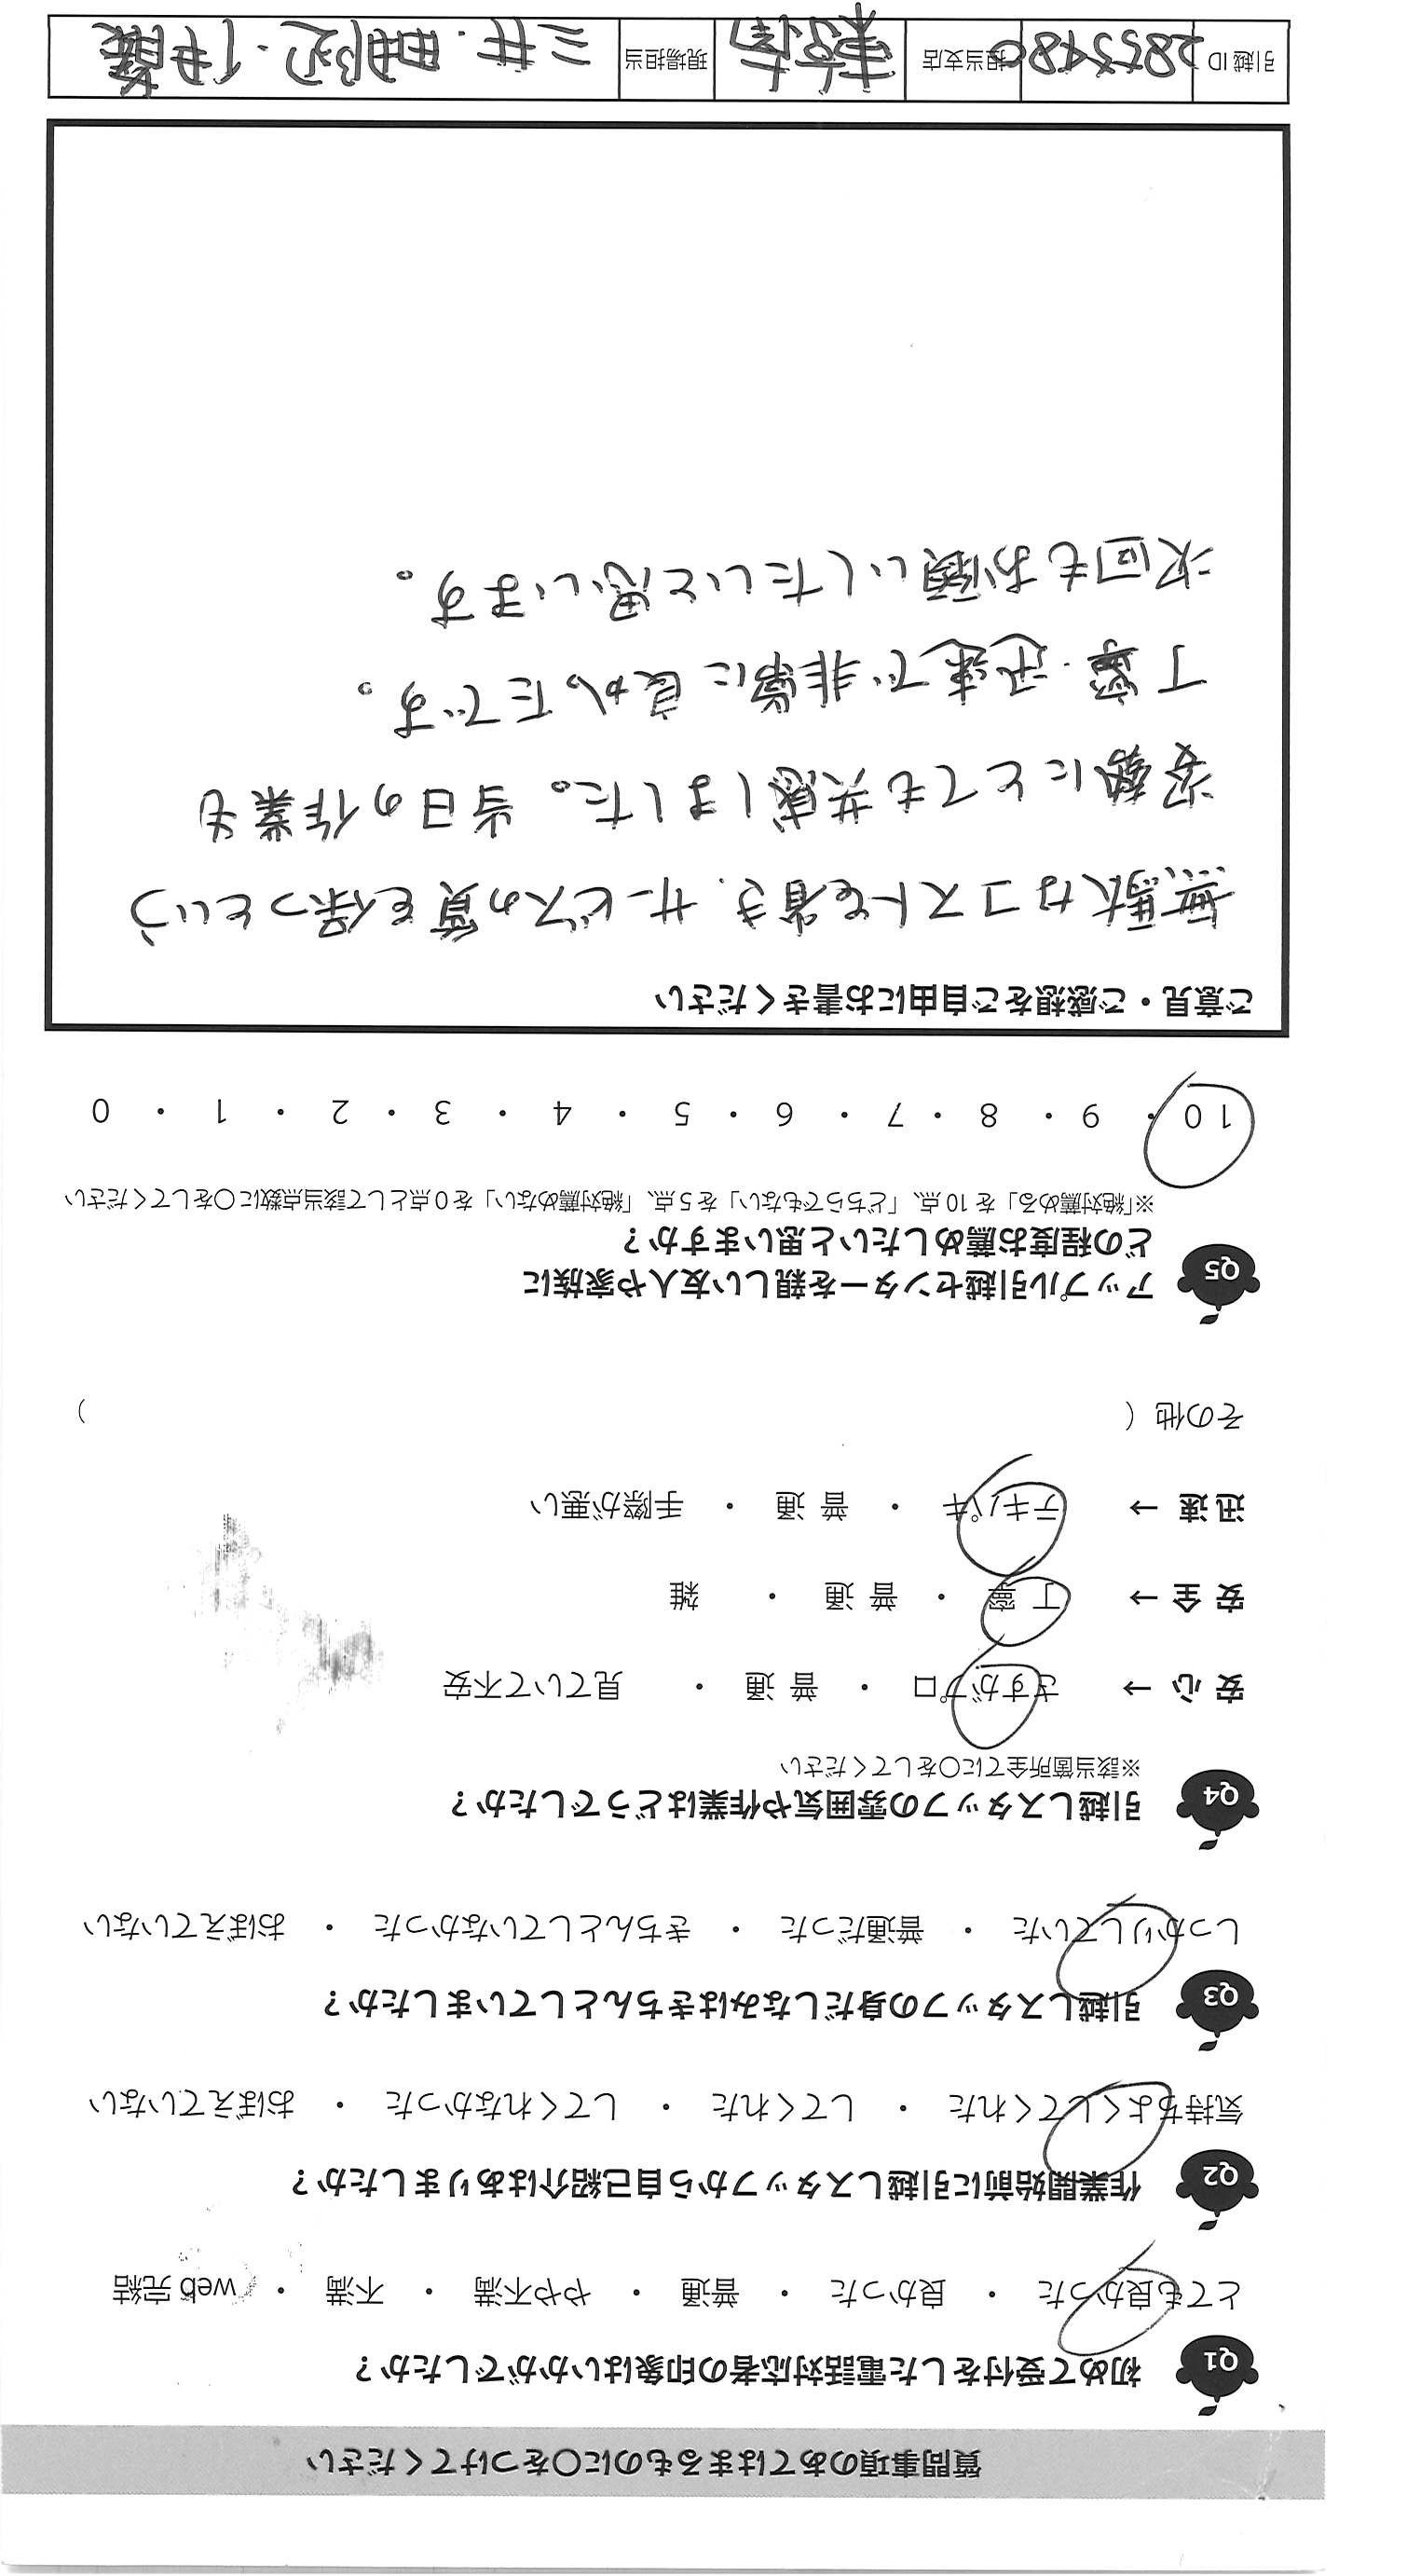 質問事項のあてはまるものに〇をつけてください
Q1 初めて受付をした電話対応者の印象はいかがでしたか？
とても良かった ・ 良かった ・ 普通 ・ やや不満 ・ 不満 ・ web 完結
Q2 作業開始前に引越しスタッフから自己紹介はありましたか？
気持ちよくしてくれた ・ してくれた ・ してくれなかった ・ おぼえていない
Q3 引越しスタッフの身だしなみはきちんとしていましたか？
しっかりしていた ・ 普通だった ・ きちんとしていなかった ・ おぼえていない
Q4 引越しスタッフの雰囲気や作業はどうでしたか？
※該当箇所全てに〇をしてください
安 心 → さすがプロ ・ 普 通 ・ 見ていて不安
安 全 → 丁 寧 ・ 普 通 ・ 雑
迅 速 → テキパキ ・ 普 通 ・ 手際が悪い
その他 （ ）
Q5 アップル引越センターを親しい友人や家族に
どの程度お薦めしたいと思いますか？
※「絶対薦める」を 10 点、「どちらでもない」を 5 点、「絶対薦めない」を 0 点として該当点数に〇をしてください
10 ・ 9 ・ 8 ・ 7 ・ 6 ・ 5 ・ 4 ・ 3 ・ 2 ・ 1 ・ 0
ご意見・ご感想をご自由にお書きください
無駄なコストを省き、サービスの質を保つという
姿勢にとても共感しました。当日の作業も
丁寧・迅速で非常に良かったです。
次回もお願いしたいと思います。
引越 ID 担当支店 現場担当 三井・ ・伊藤